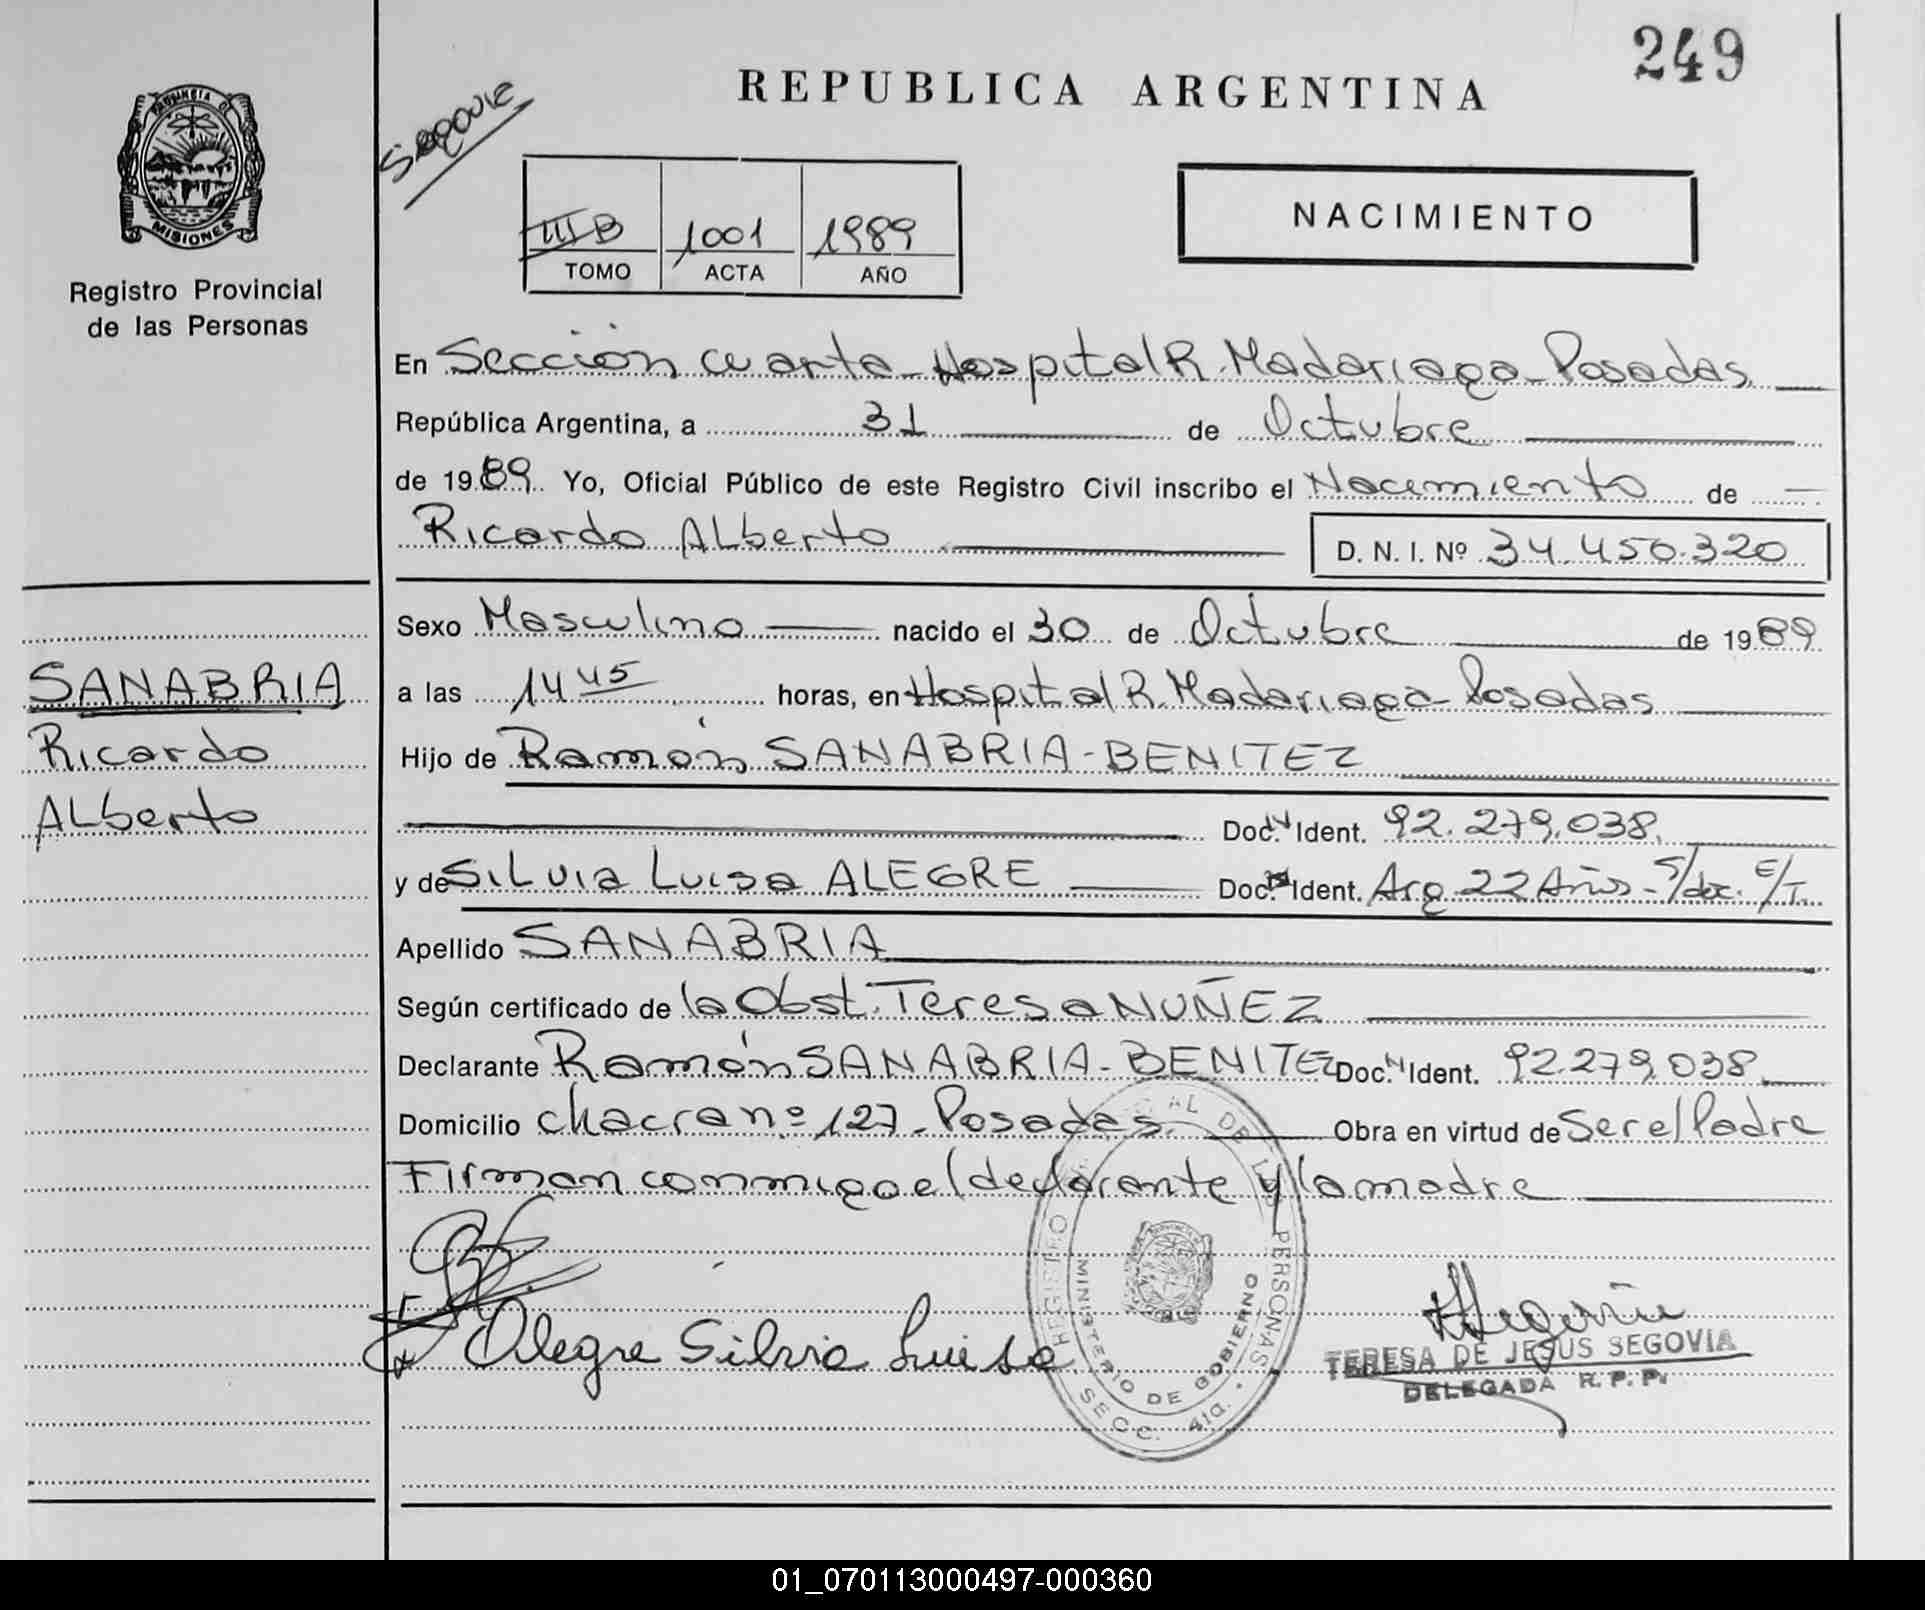 249
REPUBLICA ARGENTINA
Segovia
PROVINCIA DE
MISIONES
Registro Provincial
de las Personas
III B 1001 1989
TOMO ACTA AÑO
NACIMIENTO
En Sección cuarta - Hospital R. Madariaga - Posadas
República Argentina, a 31 de Octubre
de 1989 Yo, Oficial Público de este Registro Civil inscribo el Nacimiento de
Ricardo ALberto D. N. I. Nº 34.450.320
Sexo Masculino nacido el 30 de Octubre de 1989
SANABRIA
Ricardo
ALberto
a las 14 45 horas, en Hospital R. Madariaga - Posadas
Hijo de Ramón SANABRIA - BENITEZ
Doc. Ident. 92.279.038
y de SiLvia Luisa ALEGRE Doc. Ident. Arg 22 Años - S/doc. E/T.
Apellido SANABRIA
Según certificado de la Obst. Teresa NUÑEZ
Declarante Ramón SANABRIA - BENITEZ Doc. Ident. 92.279.038
Domicilio chacra nº 127 - Posadas Obra en virtud de Ser el Padre
Firman conmigo el declarante y la madre
Alegre Silvia Luisa
REGISTRO PROVINCIAL DE LAS PERSONAS
MINISTERIO DE GOBIERNO
SECC. 4ta.
TERESA DE JESUS SEGOVIA
DELEGADA R. P. P.
01_070113000497-000360